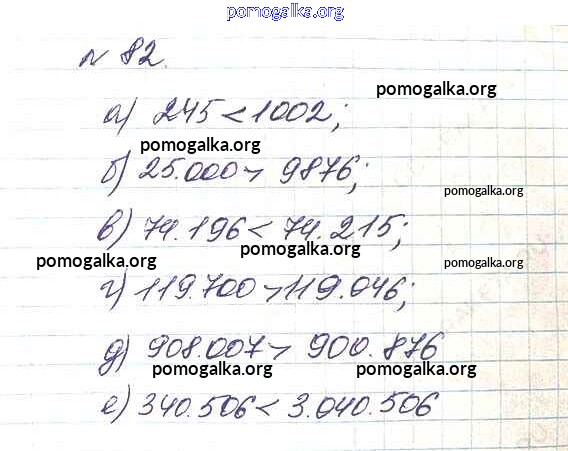 pomogalka.org
№ 82.
pomogalka.org
а) 245 < 1002;
pomogalka.org
б) 25.000 > 9876;
pomogalka.org
в) 74.196 < 74.215;
pomogalka.org
pomogalka.org
pomogalka.org
г) 119.700 > 119.046;
д) 908.007 > 900.876
pomogalka.org
pomogalka.org
е) 340.506 < 3.040.506